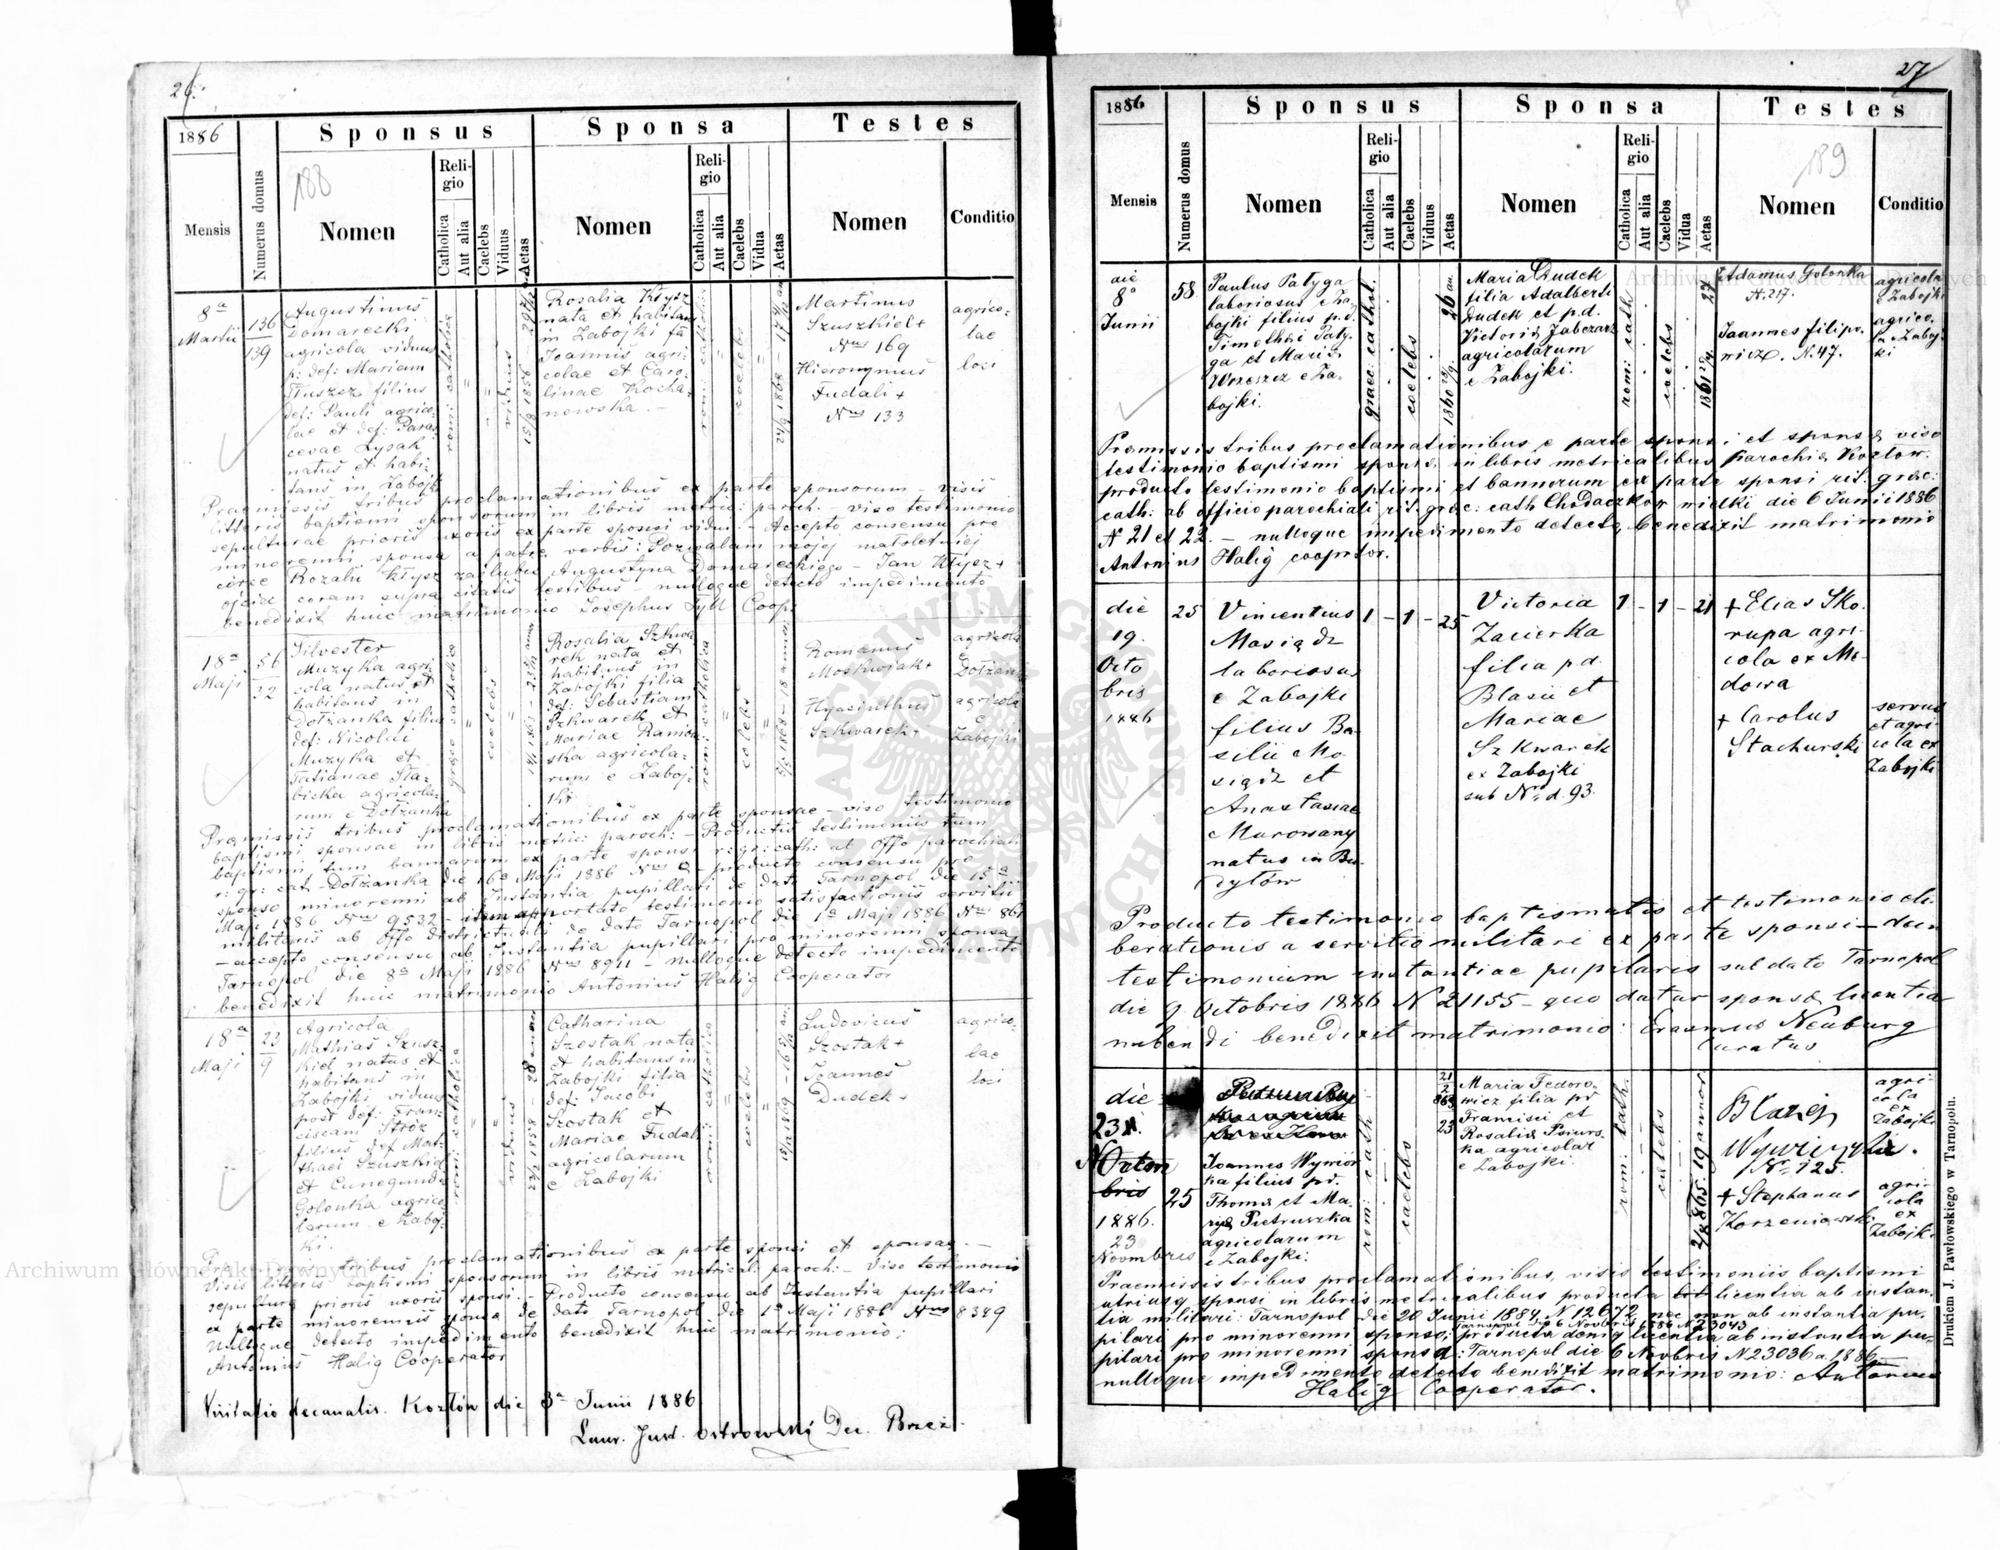 26.
1886
Numerus domus
Sponsus
Sponsa
Testes
Mensis
188
Nomen
Religio
Catholica
Aut alia
Caelebs
Viduus
Aetas
Nomen
Religio
Catholica
Aut alia
Caelebs
Vidua
Aetas
Nomen
Conditio
8ª
Martii
136
139
Augustinus
Domarecki
agricola viduus
p: def: Mariam
Tłuszcz filius
def: Pauli agrico-
lae et def: Paras
cevae Łysak
natus et habi-
tans in Zabojki
romi catholica
viduus
Rosalia Kłysz
nata et habitans
in Zabojki fa
Joannis agri-
colae et Caro-
linae Kocha-
nowska. -
romi catholica
coelebs
Martinus
Szuszkiel +
Nus 169
Hieronymus
Fudali +
Nus 133
agrico-
lae
loci
Praemissis tribus proclamationibus ex parte sponsorum visis
litteris baptismi sponsorum in libris metric: paroch: viso testimonio
sepulturae prioris uxoris ex parte sponsi vidui - Accepto consensu pro
minorenni sponsa a patre verbis: Pozwalam mojej małoletniej
córce Rozalii Kłysz zaślubić Augustyna Domareckiego - Jan Kłysz +
ojciec coram supra citatis testibus - nulloque detecto impedimento
benedixit huic matrimonio Josephus Tyll Coop:
18ª
Maji
56
22
Silvester
Muzyka agri-
cola natus et
habitans in
Dołżanka filius
def: Nicolai
Muzyka et
Tatianae Sta-
bicka agricola-
rum e Dołżanka
graeco catholica
coelebs
Rosalia Szkwa
rek nata et
habitans in
Zabojki filia
def: Sebastiani
Szkwarek et
Mariae Ramon
ska agricola-
rum e Zaboj-
ki
romi: catholica
coelebs
Romanus
Moskwjak +
Hyacinthus
Szkwarek +
agricola
e
Dołżanki
agricola
e
Zabojki
Praemissis tribus proclamationibus ex parte sponsae - viso testimonio
baptismi sponsae in libris metric: paroch: - Productis testimoniis tum
baptismi tum bannorum ex parte sponsi r: gr: cath: ab Offo parochiali
r: gr: cat - Dołżanka die 16ª Maji 1886 Nus 9 - producto consensu pro
sponso minorenni ab Instantia pupillari de dato Tarnopol die 15ª
Maji 1886 Nus 9532 - apportato testimonio satisfactionis servitii
militaris ab Offo districtuali de dato Tarnopol die 1ª Maji 1886 Nus 861
- accepto consensu ab Instantia pupillari pro minorenni sponsa
Tarnopol die 8ª Maji 1886 Nus 8911 - nulloque detecto impedimento
benedixit huic matrimonio Antonius Halig Cooperator
18ª
Maji
23
9
Agricola
Mathias Szusz-
kiel natus et
habitans in
Zabojki viduus
post def: Fran-
ciscam Stróż
filius def Mat-
thaei Szuszkiel
et Cunegunda
Golonka agrico
larum e Zaboj-
ki.
romi catholica
viduus
Catharina
Szostak nata
et habitans in
Zabojki filia
def: Jacobi
Szostak et
Mariae Fudali
agricolarum
e Zabojki
romi catholica
coelebs
Ludovicus
Szostak +
Joannes
Dudek +
agrico-
lae
loci
Praemissis tribus proclamationibus ex parte sponsi et sponsae. -
Visis litteris baptismi sponsorum in libris metrical: paroch: - Viso testimonio
sepulturae prioris uxoris sponsi. - Producto consensu ab Instantia pupillari
ex parte minorennis sponsa de dato Tarnopol die 1ª Maji 1886 Nus 8349
Nulloque detecto impedimento benedixit huic matrimonio:
Antonius Halig Cooperator
Visitatio decanalis. Kozłów die 3ª Junii 1886
Laur. Just. Ostrowski Dec. Brzeż.
27
1886
Numerus domus
Sponsus
Sponsa
Testes
189
Mensis
Nomen
Religio
Catholica
Aut alia
Caelebs
Viduus
Aetas
Nomen
Religio
Catholica
Aut alia
Caelebs
Vidua
Aetas
Nomen
Conditio
die
8ª
Junii
58.
Paulus Pałyga
laboriosus e Za-
bojki filius p.d.
Timothei Pały-
ga et Mariæ
Wrzeszcz e Za-
bojki.
graec. cathol.
coelebs
26 an.
Maria Dudek
filia Adalberti
Dudek et p.d.
Victoriæ Zabczarz
agricolarum
e Zabojki.
romi: cath.
coelebs
27
Adamus Golonka
N. 217.
Joannes filipo-
wicz. N. 47.
agricola
e Zabojki
agrico-
la e Zaboj-
ki
Præmissis tribus proclamationibus e parte sponsi et sponsæ viso
testimonio baptismi sponsæ in libris metricalibus parochiæ Kozłow.
producto testimonio baptismi et bannorum ex parte sponsi rit: græc:
cath: ab officio parochiali rit. græc: cath Chodaczków wielki die 6 Junii 1886
N 21 et 22. - nulloque impedimento detecto, benedixit matrimonio
Antonius Halig cooprtor.
die
19.
Octo
bris
1886
25
Vincentius
Masiądz
laboriosus
e Zabojki
filius Ba-
silii Mo
siądz et
Anastasiae
Murowany
natus in Bu-
dyłów
1 - 1 - 25
Victoria
Zacierka
filia p d.
Blasii et
Mariae
Szkwarek
ex Zabojki
sub Nr. d. 93.
1 - 1 - 21
+ Elias Sko-
rupa agri-
cola ex Me-
dowa
+ Carolus
Stachurski
servus
et agri-
cola ex
Zabojki
Producto testimonio baptismatis et testimonio eli-
berationis a servitio militari ex parte sponsi - dein
testimonium instantiae pupilaris sub dato Tarnopol
die 9 Octobris 1886 N 21155 - quo datur sponsæ licentia
nubendi benedixit matrimonio: Erasmus Neuburg
Curatus
die
23.
1886.
23
Novmbris
25
Joannes Wywiór
ka filius pd.
Thomæ et Ma-
riæ Pietruszka
agricolarum
e Zabojki.
rom: cath
caelebs
21
2
863
23
Maria Fedoro-
wicz filia pd
Francisci et
Rosaliæ Psiurs-
ka agricolar
e Zabojki.
rom: cath.
caelebs
2/2 865. 19 annor
Błażej
Wywiurka.
N. 125.
+ Stephanus
Korzeniowski
agri-
cola
ex
Zabojki
agri-
cola
ex
Zabojki
Praemissis tribus proclamationibus, visis testimoniis baptismi
utriusq sponsi in libris metricalibus producta licentia ab instan-
tia militari: Tarnopol die 20 Junii 1884 N 12672 nec non ab instantia pu-
Tarnopol die 6 Novbris 1886 N 23043
pilari pro minorenni sponso; producta deniq licentia ab instantia pu-
pilari pro minorenni sponsa: Tarnopol die 6 Novbris N 23036 a. 1886
nulloque impedimento detecto benedixit matrimonio: Antonius
Halig Cooperator.
Drukiem J. Pawłowskiego w Tarnopolu.
Archiwum Główne Akt Dawnych
Archiwum Główne Akt Dawnych
ARCHIWUM GŁÓWNE AKT DAWNYCH